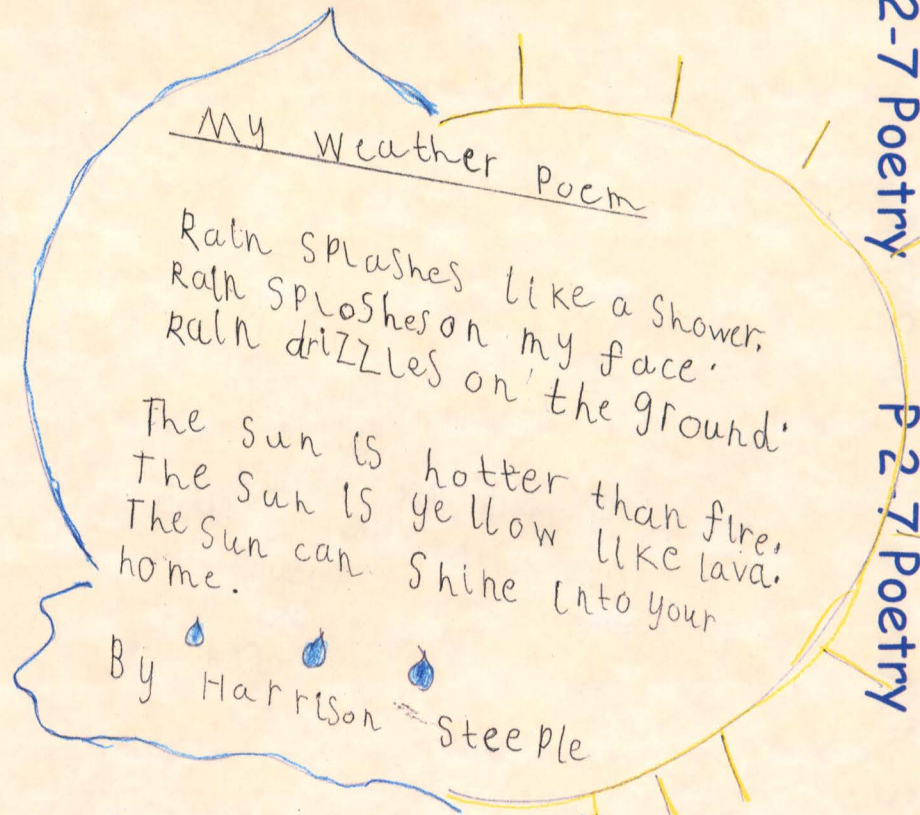 My Weather Poem
Rain splashes like a shower.
Rain sploshes on my face.
Rain drizzles on the ground.
The sun is hotter than fire.
The sun is yellow like lava.
The sun can shine into your
home.
By Harrison Steeple
2-7 Poetry
P 2-7 Poetry